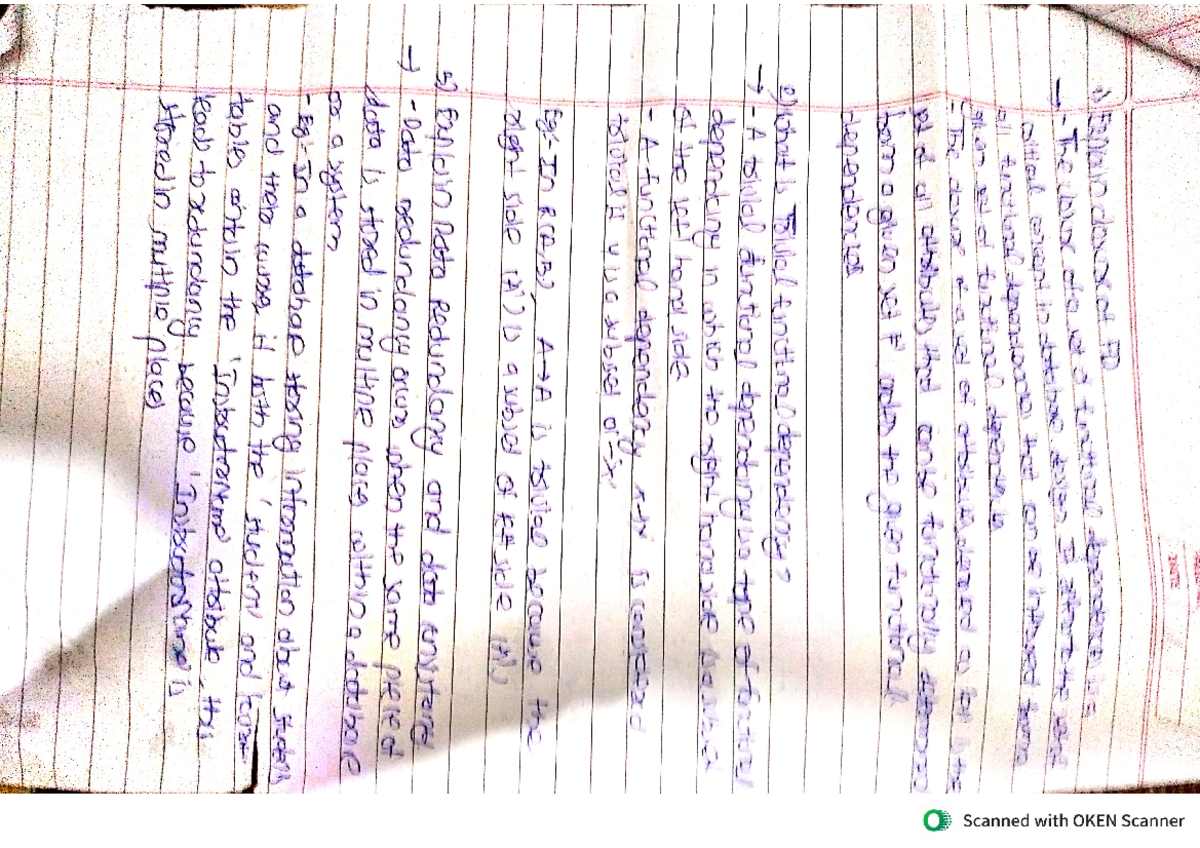 1) Explain closure of FD
→ - The closure of a set of functional dependencies is a
critical concept in database design. It refers to the set of
all functional dependencies that can be inferred from a
given set of functional dependencies
- The closure of a set of attributes defined as the
set of all attributes that can be functionally determined
from a given set F using the given functional
dependencies
2) What is Trivial functional dependency?
→ - A trivial functional dependency is a type of functional
dependency in which the right hand side is a subset
of the left hand side
- A functional dependency is considered
trivial if y is a subset of 'x'
Eg:- In R(A,B), A→A is trivial because the
right side (A) is a subset of left side (A)
5) Explain Data Redundancy and data consistency
→ - Data redundancy occurs when the same piece of
data is stored in multiple places within a database
or a system
- Eg:- In a database storing information about students
and there courses, if both the 'student' and 'course'
tables contain the 'Instructorname' attribute, this
leads to redundancy because 'Instructorname' is
stored in multiple places
Scanned with OKEN Scanner